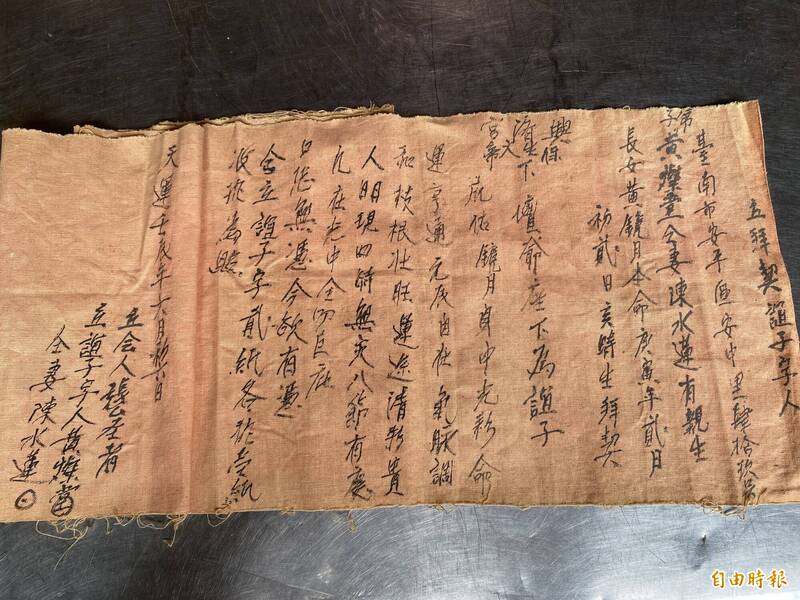 立拜契誼子字人
臺南市安平區安中里肆拾玖号
弟子黃燦堂仝妻陳水蓮有親生
長女黃鏡月本命庚寅年貳月
初貳日亥時生拜契
興保
濟下壇爺座下為誼子
庇佑鏡月身中光彩命
運亨通元辰自在氣脉調
和枝根壯旺運途清彩貴
人明現四時無災八節有慶
凡在光中全仞巨庇
口恐無憑今欲有憑
仝立誼子字貳紙各执壱紙
收执為照
天運壬辰年六月初六日
立会人張圣者
立誼子字人黃燦當
仝妻陳水蓮
自由時報